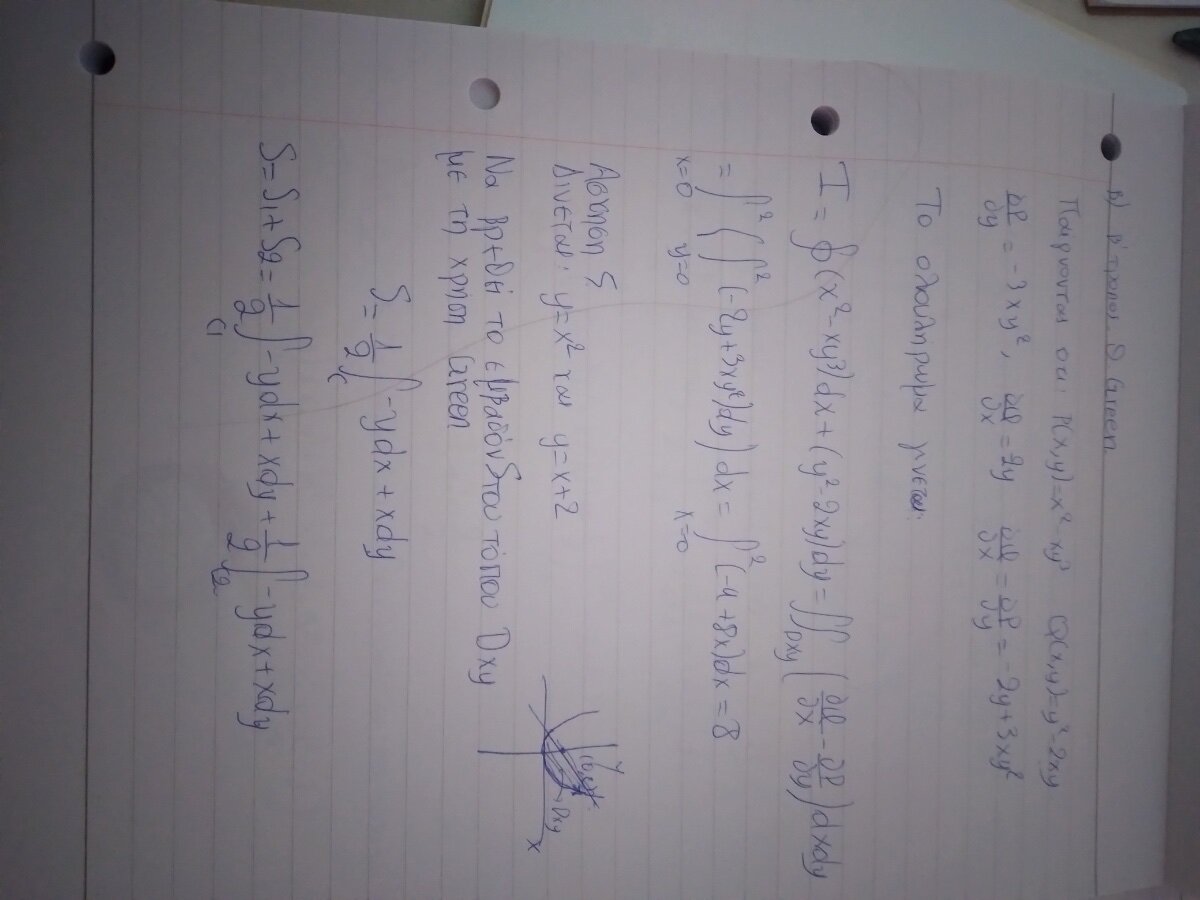 β) Β' τροπος Θ Green
Παιρνονται οτι: P(x,y)=x²-xy³ Q(x,y)=y²-2xy
∂P/∂y = -3xy², ∂Q/∂x = 2y ∂Q/∂x = ∂P/∂y = -2y+3xy²
Το ολοκληρωμα γινεται:
I = ∮(x²-xy³)dx+(y²-2xy)dy = ∬Dxy (∂Q/∂x - ∂P/∂y)dxdy
= ∫²x=0 (∫²y=0 (-2y+3xy²)dy)dx = ∫²x=0 (-4+8x)dx = 8
Ασκηση 5
Δινεται: y=x² και y=x+2
Να βρεθεί το εμβαδόν S του τόπου Dxy
με τη χρηση Green
y
Dxy
x
S = 1/2 ∫c -ydx + xdy
S = S1 + S2 = 1/2 ∫c1 -ydx + xdy + 1/2 ∫c2 -ydx + xdy